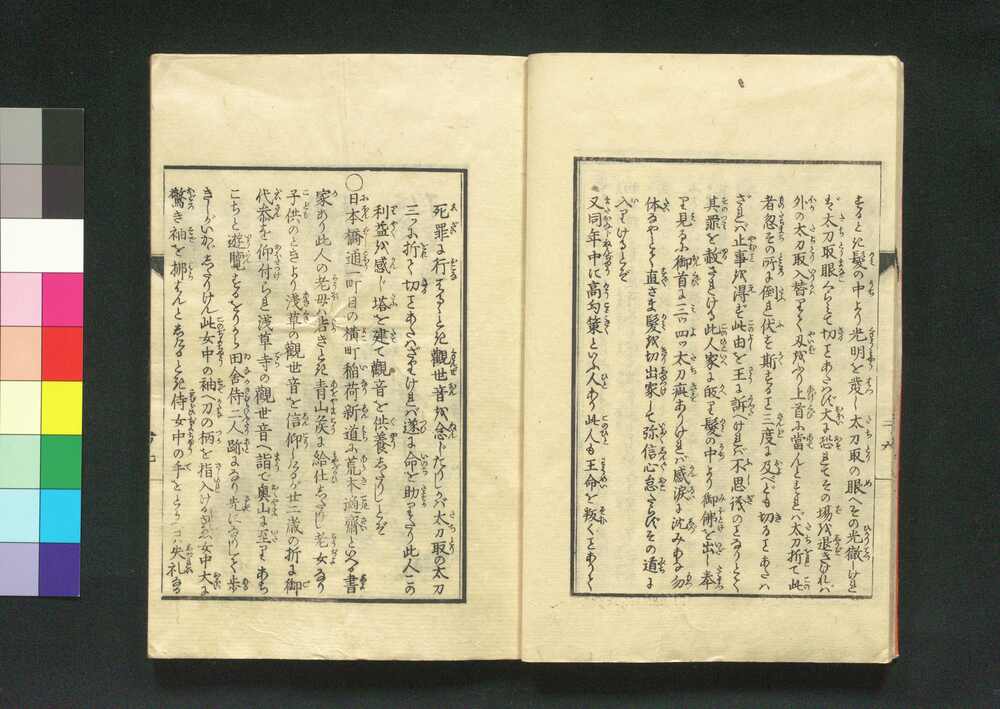 するとき髪の中より光明を發し太刀取の眼へその光徹しけれ
ば太刀取眼くらみて切ことあたはず大に恐れてその場を退きけれバ
外の太刀取入替りて又々刃をふり上首に當んとすれバ太刀折て此
者忽その所に倒れ伏を斯すること三度に及べども切ることあたハ
ざれバ止事を得ず此由を王に訴へけれバ不思儀のことなりとて
其罪を赦されける此人家に皈り髪の中より御佛を出し奉
り見るに御首に三ツ四ツ太刀疵ありけれバ感涙に沈みあな勿
体なやとて直さま髪を切出家して弥信心怠たらずその道に
入りけるとぞ
又同年中に高均策といふ人あり此人も王命を叛くことありて
死罪に行はるるとき觀世音を念じたりしが太刀取の太刀
三つに折て切ことあたハざりけれバ遂に命を助りたり此人この
利益を感じ塔を建て觀音を供養したりしとぞ
○日本橋通一町目の横町稲荷新道に荒木適齋といへる書
家あり此人の老母ハ若きとき青山矦に給仕したりし老女なり
子供のときより浅草の觀世音を信仰しけるが廿二歳の折に御
代参を仰付られ浅草寺の觀世音へ詣で奥山に至りあち
こちと遊覧するをりから田舎侍二人跡になり先になりして歩
きしがいかゞしたりけん此女中の袖へ刀の柄を指入けるゆゑ女中大に
驚き袖を拂はんとしたるとき侍女中の手をとりコハ失礼なる